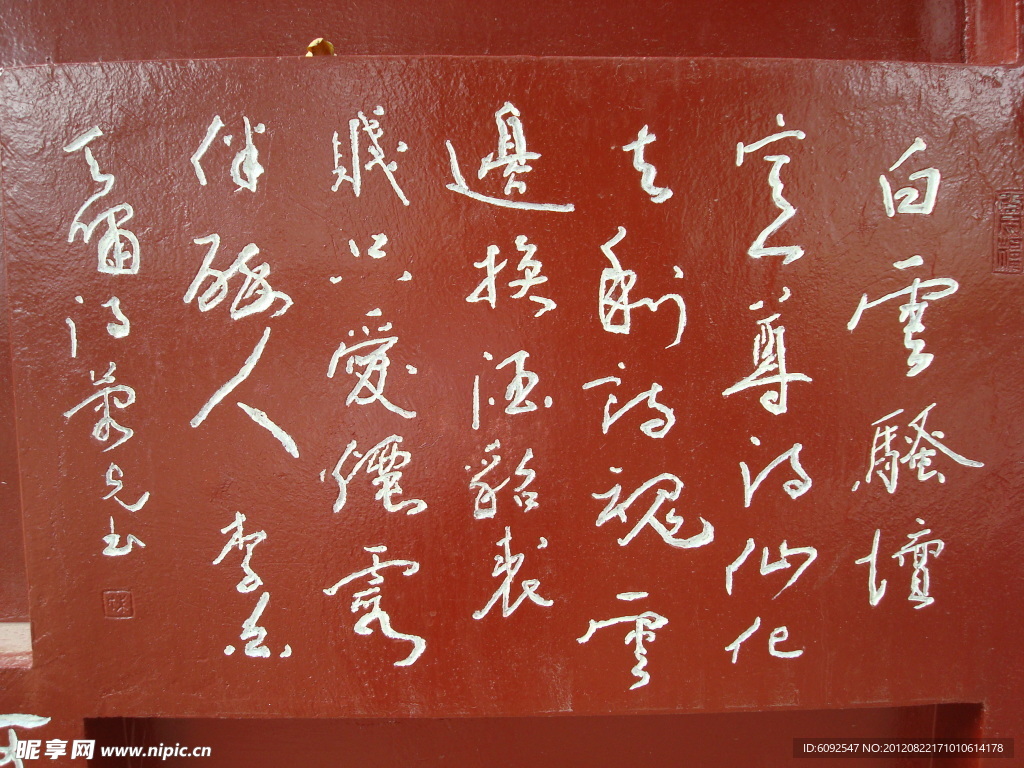 白雲騷壇
定一尊詩仙化
去剩詩魂雲
邊換酒貂裘
賤只愛僊
伴醉人 李
天嘯詩 書
昵享网 www.nipic.cn
ID:6092547 NO:20120822171010614178